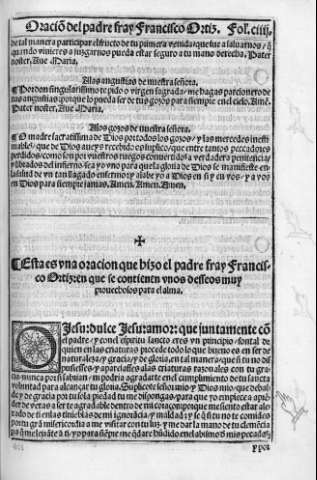 Oraciõ del padre fray Francisco Ortiz. Fol. ciiij.
de tal manera participar el fructo de tu primera venida/que fue a saluarnos/q̃
quando vinieres a juzgarnos pueda estar seguro a tu mano derecha. Pater
noster. Aue Maria.
A las angustias de nuestra señora.
¶ Por den singularissimo te pido o virgen sagrada/me hagas parcionero de
tus angustias/porque lo pueda ser de tus gozos para siempre en el cielo. Amẽ.
Pater noster. Aue Maria.
A los gozos de nuestra señora.
¶ O madre sacratissima de Dios por todos los gozos/y las mercedes ineffi
mables/que de Dios aueys recebido os suplico/que entre tantos peccadores
perdidos/como son por vuestros ruegos conuertidos a verdadera penitencia/
y librados del infierno sea yo vno para que la gloria de Dios se manifieste en
la salud de vn tan llagado enfermo: y alabe yo a Dios en si y en vos/y a vos
en Dios para siempre jamas. Amen. Amen. Amen.
¶ Esta es vna oracion que hizo el padre fray Francis-
co Ortiz: en que se contienen vnos desseos muy
prouechosos para el alma.
O Jesu: dulce Jesu: amor: que juntamente cõ
el padre/y con el espiritu sancto eres vn principio/fontal de
quien en las criaturas procede todo lo que bueno es en ser de
naturaleza/y gracia/y de gloria/en tal manera que si tu no di
pusiesses/y aparejasses a las criaturas razonales con tu gra-
cia/nunca por si sabrian/ni podria agradarte en el cumplimiento de tu sancta
voluntad para alcançar tu gloria. Suplicote señor mio y Dios mio/que de bal-
de y de gracia por tu sola piedad tu me dispongas/para que yo empiece a apiẽ
der de veras a ser te agradable dentro de mi coraçon: porque me siento estar ale
xado de ti en las tinieblas de mi ignorãcia/y maldad: y se q̃ si tu no te comides
por tu grã misericordia a me visitar con tu luz/y me dar la mano de tu clemẽcia
pa q̃ me leuãte a ti/yo para siẽpre me q̃dare hũdido en el abismo d̃ mis pecados: